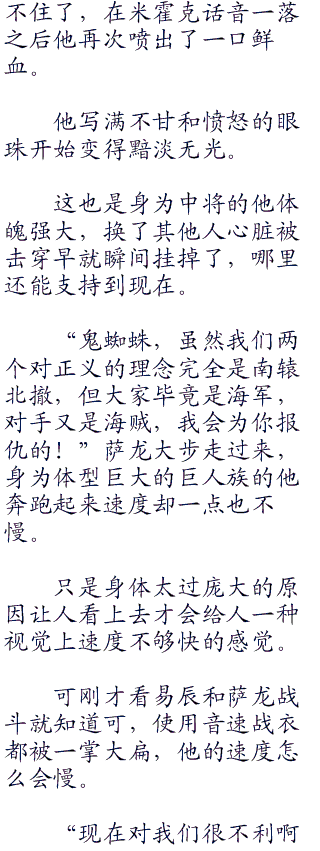 不住了，在米霍克话音一落
之后他再次喷出了一口鲜
血。
他写满不甘和愤怒的眼
珠开始变得黯淡无光。
这也是身为中将的他体
魄强大，换了其他人心脏被
击穿早就瞬间挂掉了，哪里
还能支持到现在。
“鬼蜘蛛，虽然我们两
个对正义的理念完全是南辕
北撤，但大家毕竟是海军，
对手又是海贼，我会为你报
仇的！”萨龙大步走过来，
身为体型巨大的巨人族的他
奔跑起来速度却一点也不
慢。
只是身体太过庞大的原
因让人看上去才会给人一种
视觉上速度不够快的感觉。
可刚才看易辰和萨龙战
斗就知道可，使用音速战衣
都被一掌大扁，他的速度怎
么会慢。
“现在对我们很不利啊